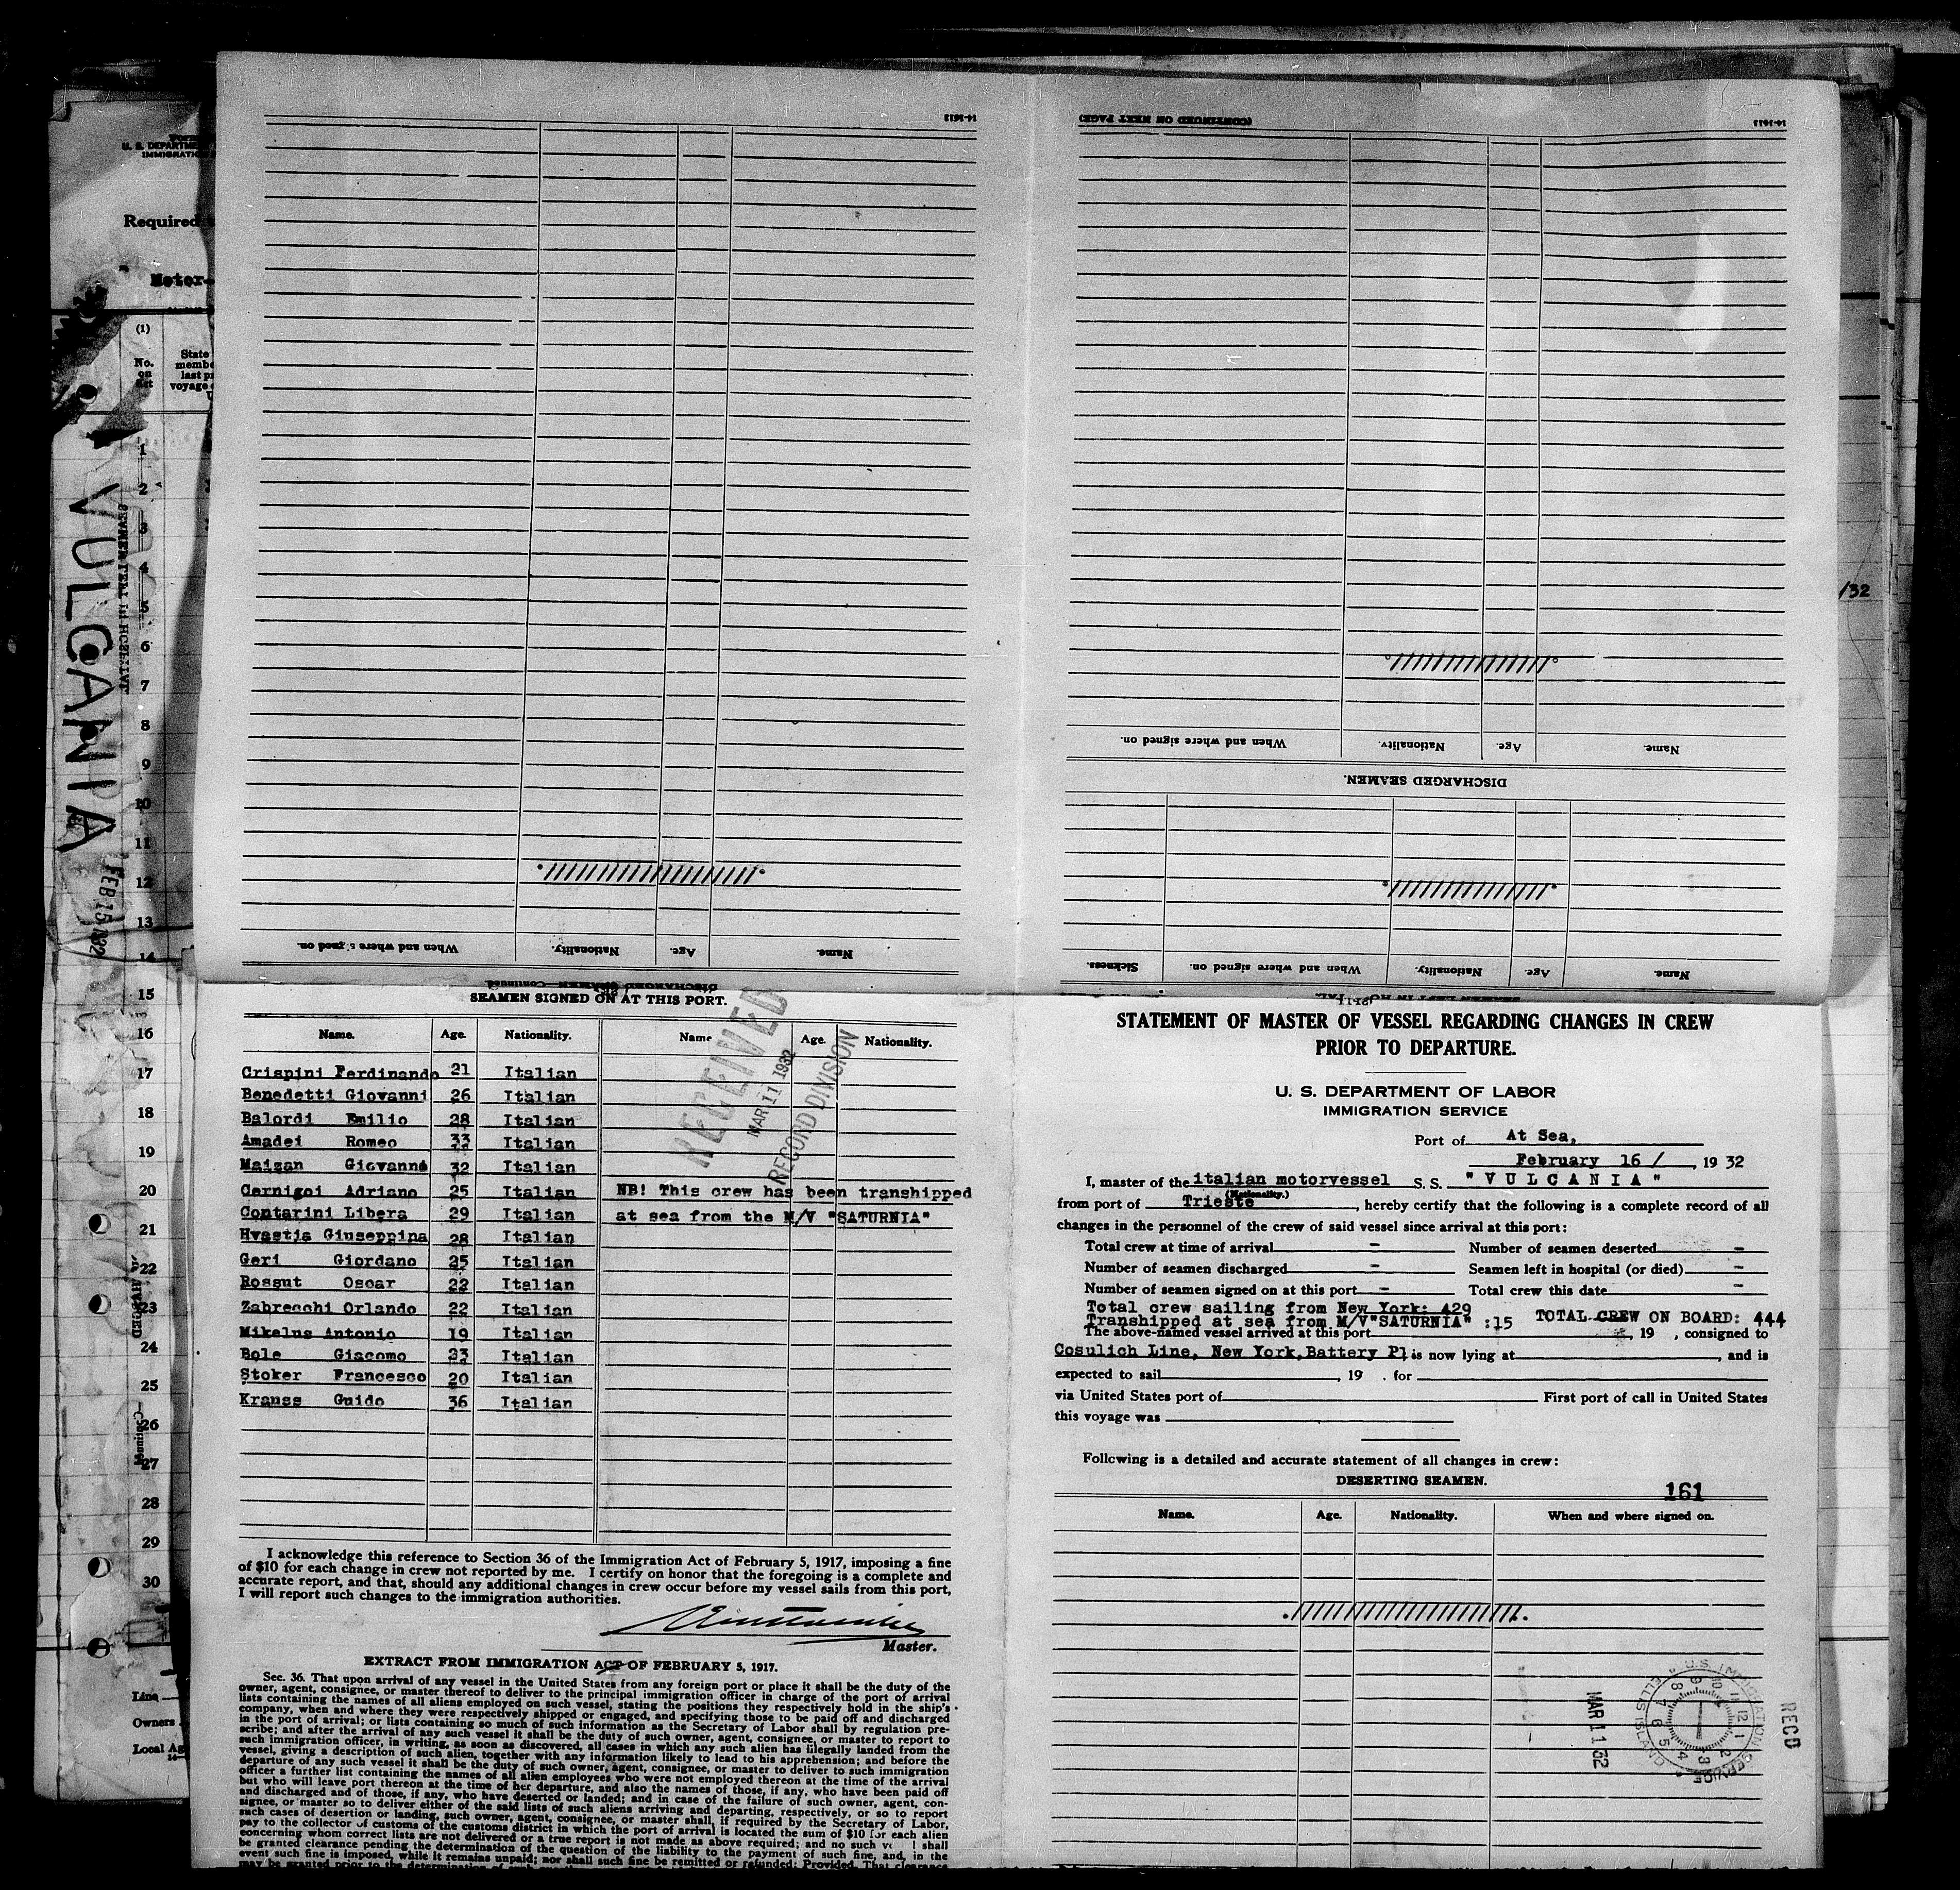 U. S. DEPARTMENT
IMMIGRATION
Required
Motor-
(1)
No. on list
State
last
voyage
1
2
3
4
5
6
7
8
9
10
11
12
13
14
15
16
17
18
19
20
21
22
23
24
25
26
27
28
29
30
Line
Owners
Local
VULCANIA
FEB 15 1932
/32
14-1612
(CONTINUED ON NEXT PAGE)
14-1612
When and where signed on. Nationality. Age. Name.
DISCHARGED SEAMEN.
Sickness. When and where signed on. Nationality. Age. Name.
SEAMEN LEFT IN HOSPITAL
When and where signed on. Nationality. Age. Name.
DISCHARGED SEAMEN—Continued
SEAMEN SIGNED ON AT THIS PORT.
Name. Age. Nationality. Name Age. Nationality.
Crispini Ferdinando 21 Italian
Benedetti Giovanni 26 Italian
Balordi Emilio 28 Italian
Amadei Romeo 33 Italian
Maizan Giovanni 32 Italian
Cernigoi Adriano 25 Italian NB! This crew has been transhipped
Contarini Libera 29 Italian at sea from the M/V "SATURNIA"
Hvastia Giuseppina 28 Italian
Geri Giordano 25 Italian
Rossut Oscar 22 Italian
Zabrecchi Orlando 22 Italian
Mikelus Antonio 19 Italian
Bole Giacomo 23 Italian
Stoker Francesco 20 Italian
Krauss Guido 36 Italian
RECEIVED
MAR 11 1932
RECORD DIVISION
I acknowledge this reference to Section 36 of the Immigration Act of February 5, 1917, imposing a fine
of $10 for each change in crew not reported by me. I certify on honor that the foregoing is a complete and
accurate report, and that, should any additional changes in crew occur before my vessel sails from this port,
I will report such changes to the immigration authorities.
Master.
EXTRACT FROM IMMIGRATION ACT OF FEBRUARY 5, 1917.
Sec. 36. That upon arrival of any vessel in the United States from any foreign port or place it shall be the duty of the
owner, agent, consignee, or master thereof to deliver to the principal immigration officer in charge of the port of arrival
lists containing the names of all aliens employed on such vessel, stating the positions they respectively hold in the ship's
company, when and where they were respectively shipped or engaged, and specifying those to be paid off and discharged
in the port of arrival; or lists containing so much of such information as the Secretary of Labor shall by regulation pre-
scribe; and after the arrival of any such vessel it shall be the duty of such owner, agent, consignee, or master to report to
such immigration officer, in writing, as soon as discovered, all cases in which any such alien has illegally landed from the
vessel, giving a description of such alien, together with any information likely to lead to his apprehension; and before the
departure of any such vessel it shall be the duty of such owner, agent, consignee, or master to deliver to such immigration
officer a further list containing the names of all alien employees who were not employed thereon at the time of the arrival
but who will leave port thereon at the time of her departure, and also the names of those, if any, who have been paid off
and discharged and of those, if any, who have deserted or landed; and in case of the failure of such owner, agent, con-
signee, or master so to deliver either of the said lists of such aliens arriving and departing, respectively, or so to report
such cases of desertion or landing, such owner, agent, consignee, or master shall, if required by the Secretary of Labor,
pay to the collector of customs of the customs district in which the port of arrival is located the sum of $10 for each alien
concerning whom correct lists are not delivered or a true report is not made as above required; and no such shall
be granted clearance pending the determination of the question of the liability to the payment of such fine, and, in the
event such fine is imposed, while it remains unpaid; nor shall such fine be remitted or refunded: Provided, That clearance
STATEMENT OF MASTER OF VESSEL REGARDING CHANGES IN CREW
PRIOR TO DEPARTURE.
U. S. DEPARTMENT OF LABOR
IMMIGRATION SERVICE
Port of At Sea,
February 16 / , 1932
I, master of the italian motorvessel S. S. "VULCANIA"
(Nationality.)
from port of Trieste , hereby certify that the following is a complete record of all
changes in the personnel of the crew of said vessel since arrival at this port:
Total crew at time of arrival - Number of seamen deserted -
Number of seamen discharged - Seamen left in hospital (or died) -
Number of seamen signed on at this port - Total crew this date -
Total crew sailing from New York: 429
Transhipped at sea from M/V"SATURNIA" :15 TOTAL CREW ON BOARD: 444
The above-named vessel arrived at this port , 19 , consigned to
Cosulich Line, New York, Battery Pl is now lying at , and is
expected to sail , 19 . for
via United States port of First port of call in United States
this voyage was
Following is a detailed and accurate statement of all changes in crew:
DESERTING SEAMEN.
161
Name. Age. Nationality. When and where signed on.
U.S. IMMIGRATION SERVICE
ELLIS ISLAND
MAR 11 32
REC'D